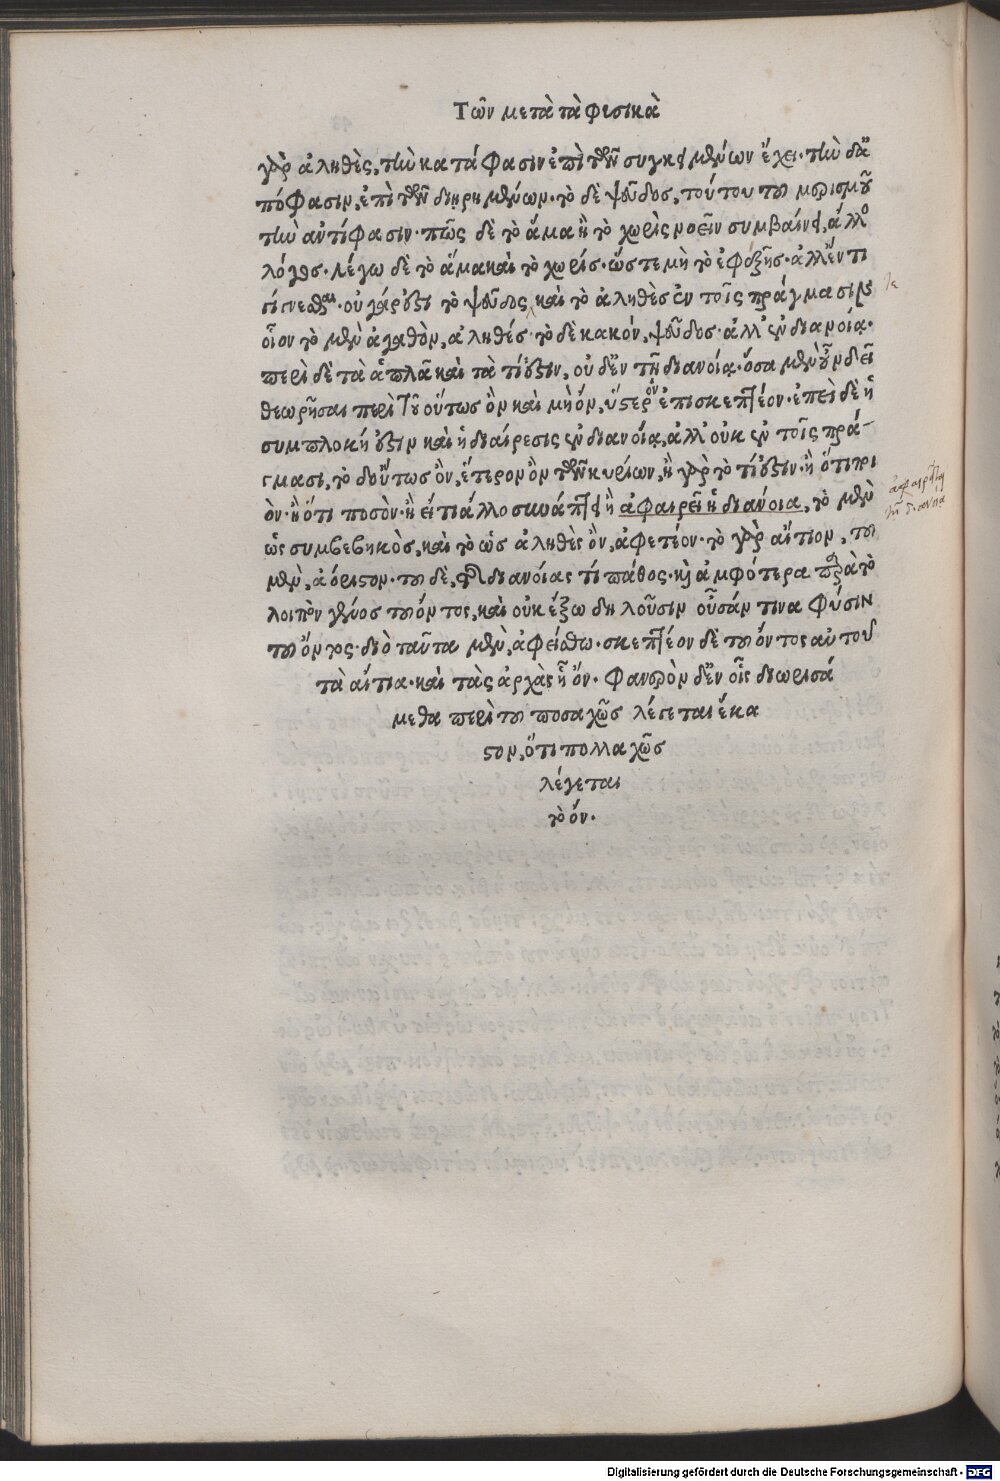 Τῶν μετὰ τὰ φυσικὰ
γὰρ ἀληθὲς, τὴν κατάφασιν ἐπὶ τῶν συγκειμένων ἔχει. τὴν δ᾽ ἀ
πόφασιν, ἐπὶ τῶν διῃρημένων. τὸ δὲ ψεῦδος, τούτου τοῦ μερισμοῦ
τὴν ἀντίφασιν. πῶς δὲ τὸ ἅμα ἢ τὸ χωρὶς νοεῖν συμβαίνει, ἄλλος
λόγος. λέγω δὲ τὸ ἅμα καὶ τὸ χωρίς. ὥστε μὴ τὸ ἐφεξῆς. ἀλλ᾽ ἕν τι
γίγνεσθαι. οὐ γάρ ἐστι τὸ ψεῦδος καὶ τὸ ἀληθὲς ἐν τοῖς πράγμασιν
οἷον τὸ μὲν ἀγαθὸν, ἀληθές. τὸ δὲ κακόν, ψεῦδος. ἀλλ᾽ ἐν διανοίᾳ.
περὶ δὲ τὰ ἁπλᾶ καὶ τὰ τί ἐστιν, οὐδ᾽ ἐν τῇ διανοίᾳ. ὅσα μὲν οὖν δεῖ
θεωρῆσαι περὶ τὸ οὕτως ὂν καὶ μὴ ὂν, ὕστερον ἐπισκεπτέον. ἐπεὶ δὲ ἡ
συμπλοκή ἐστιν καὶ ἡ διαίρεσις ἐν διανοίᾳ, ἀλλ᾽ οὐκ ἐν τοῖς πρά-
γμασι, τὸ δ᾽ οὕτως ὂν, ἕτερον ὂν τῶν κυρίων, ἢ γὰρ τὸ τί ἐστιν. ἢ ὅτι ποι
ὸν. ἢ ὅτι ποσὸν. ἢ εἴ τι ἄλλο συνάπτει ἢ ἀφαιρεῖ ἡ διάνοια, τὸ μὲν
ὡς συμβεβηκὸς, καὶ τὸ ὡς ἀληθὲς ὂν, ἀφετέον. τὸ γὰρ αἴτιον, τοῦ
μὲν, ἀόριστον. τοῦ δὲ, τῆς διανοίας τί πάθος. καὶ ἀμφότερα περὶ τὸ
λοιπὸν γένος τοῦ ὄντος, καὶ οὐκ ἔξω δηλοῦσιν οὖσάν τινα φύσιν
τοῦ ὄντος. διὸ ταῦτα μὲν, ἀφείσθω. σκεπτέον δὲ τοῦ ὄντος αὐτοῦ
τὰ αἴτια. καὶ τὰς ἀρχὰς ᾗ ὄν. φανερὸν δ᾽ ἐν οἷς διωρισά
μεθα περὶ τοῦ ποσαχῶς λέγεται ἕκα
στον, ὅτι πολλαχῶς
λέγεται
τὸ ὄν.
τῆς διανοίας
Digitalisierung gefördert durch die Deutsche Forschungsgemeinschaft - DFG